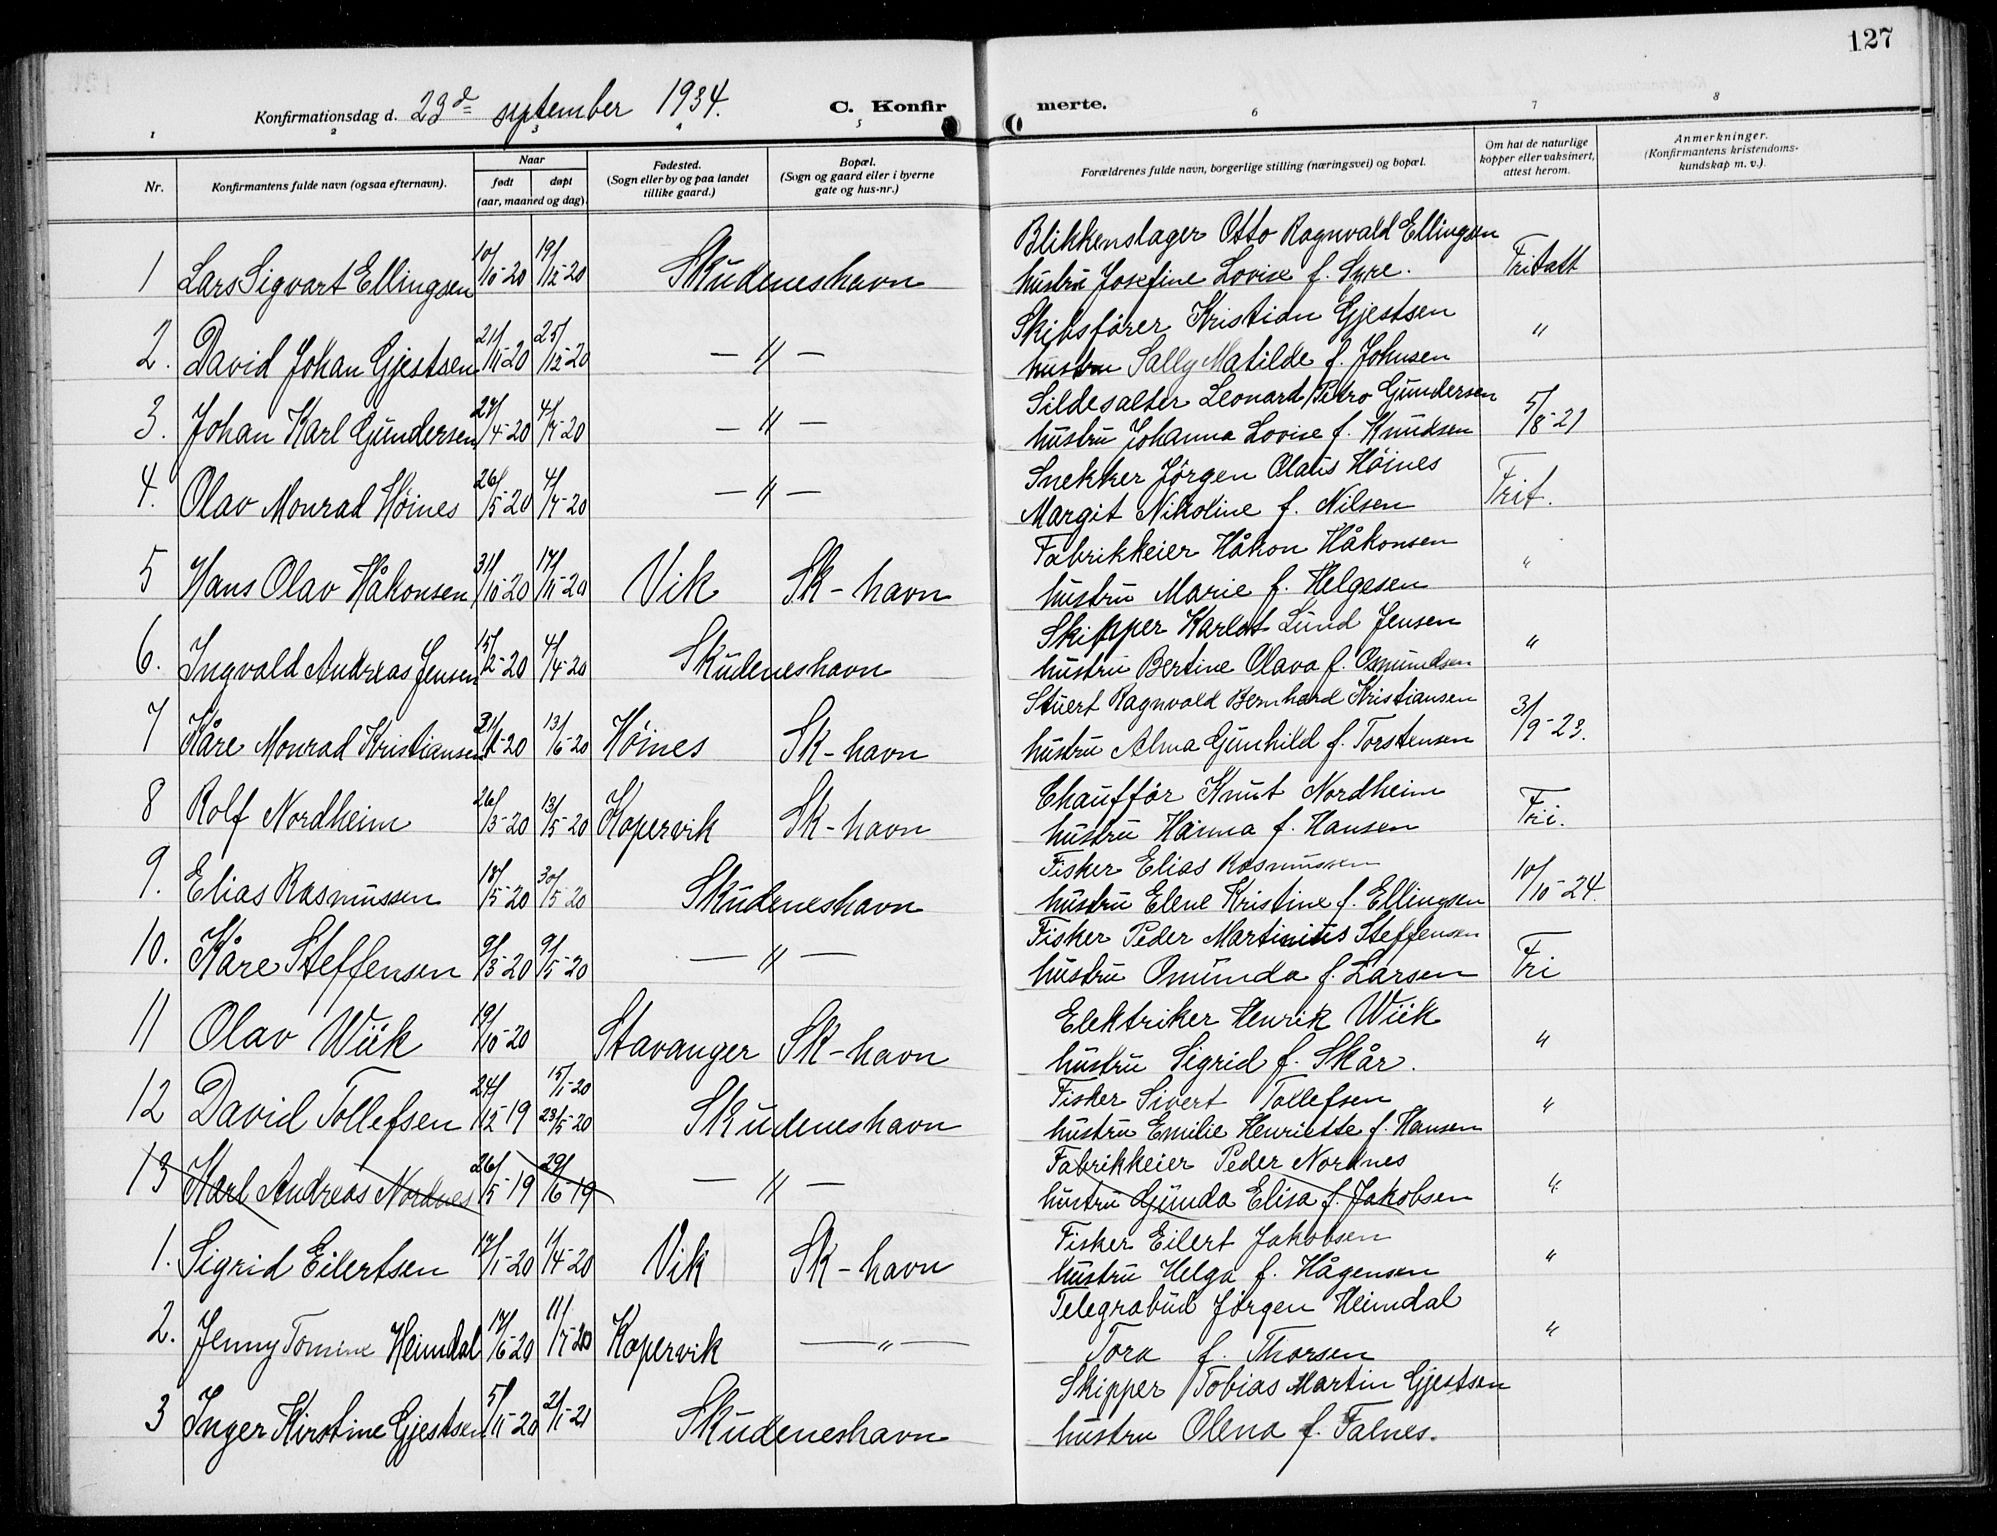 127
Konfirmationsdag d. 23d september 1934. C. Konfirmerte.
1 2 3 4 5 6 7 8
Nr.
Konfirmantens fulde navn (ogsaa efternavn).
Naar
født døpt
(aar, maaned og dag).
Fødested.
(Sogn eller by og paa landet
tillike gaard.)
Bopæl.
(Sogn og gaard eller i byerne
gate og hus-nr.)
Forældrenes fulde navn, borgerlige stilling (næringsvei) og bopæl.
Om hat de naturlige
kopper eller vaksinert,
attest herom.
Anmerkninger.
(Konfirmantens kristendoms-
kundskap m. v.).
Blikkenslager Otto Ragnvald Ellingsen
1 Lars Sigvart Ellingsen 10/10-20 19/12-20 Skudeneshavn hustru Josefine Lovise f. Syre. Fritatt
Skibsfører Kristian Gjestsen
2. David Johan Gjestsen 21/11-20 25/12-20 — " — hustru Sally Matilde f. Johnsen "
Sildesalter Leonard Petro Gundersen
3. Johan Karl Gundersen 27/4-20 4/7-20 — " — hustru Johanna Lovise f. Knudsen 5/8-21
Snekker Jørgen Olaus Høines
4. Olav Monrad Høines 26/5-20 4/7-20 — " — Margit Nikoline f. Nilsen Frit.
Fabrikkeier Håkon Håkonsen
5 Hans Olav Håkonsen 31/10-20 17/11-20 Vik Sk-havn hustru Marie f. Helgesen "
Skipper Karlot Lund Jensen
6. Ingvald Andreas Jensen 15/2-20 4/4-20 Skudeneshavn hustru Bertine Olava f. Osmundsen "
Stuert Ragnvald Bernhard Kristiansen
7 Kåre Monrad Kristiansen 13/6-20 Høines Sk-havn hustru Alma Gunhild f. Torstensen 3/9-23.
Chauffør Knut Nordheim
8 Rolf Nordheim 26/3-20 13/5-20 Kopervik Sk-havn hustru Hanna f. Hansen Fri.
Fisker Elias Rasmussen
9. Elias Rasmussen 18/5-20 30/5-20 Skudeneshavn hustru Elene Kristine f. Ellingsen 10/10-24.
Fisker Peder Martinius Steffensen
10. Kåre Steffensen 9/3-20 9/5-20 — " — hustru Omunda f. Larsen Fri
Elektriker Henrik Wiik
11 Olav Wiik 19/10-20 Stavanger Sk-havn hustru Sigrid f. Skår. "
Fisker Sivert Tollefsen
12 David Tollefsen 24/12-19 15/1-20 23/5-20 Skudeneshavn hustru Emilie Henriette f. Hansen "
Fabrikkeier Peder Nordnes
13 Karl Andreas Nordnes 26/5-19 29/6-19 — " — hustru Gunda Elisa f. Jakobsen "
Fisker Eilert Jakobsen
1. Sigrid Eilertsen 17/1-20 1/4-20 Vik Sk-havn hustru Helga f. Hågensen "
Telegrabud Jørgen Heimdal
2. Jenny Tomine Heimdal 17/6-20 11/7-20 Kopervik — " — Tora f. Thorsen "
Skipper Tobias Martin Gjestsen
3 Inger Kirstine Gjestsen 5/11-20 2/1-21 Skudeneshavn hustru Olena f. Falnes.